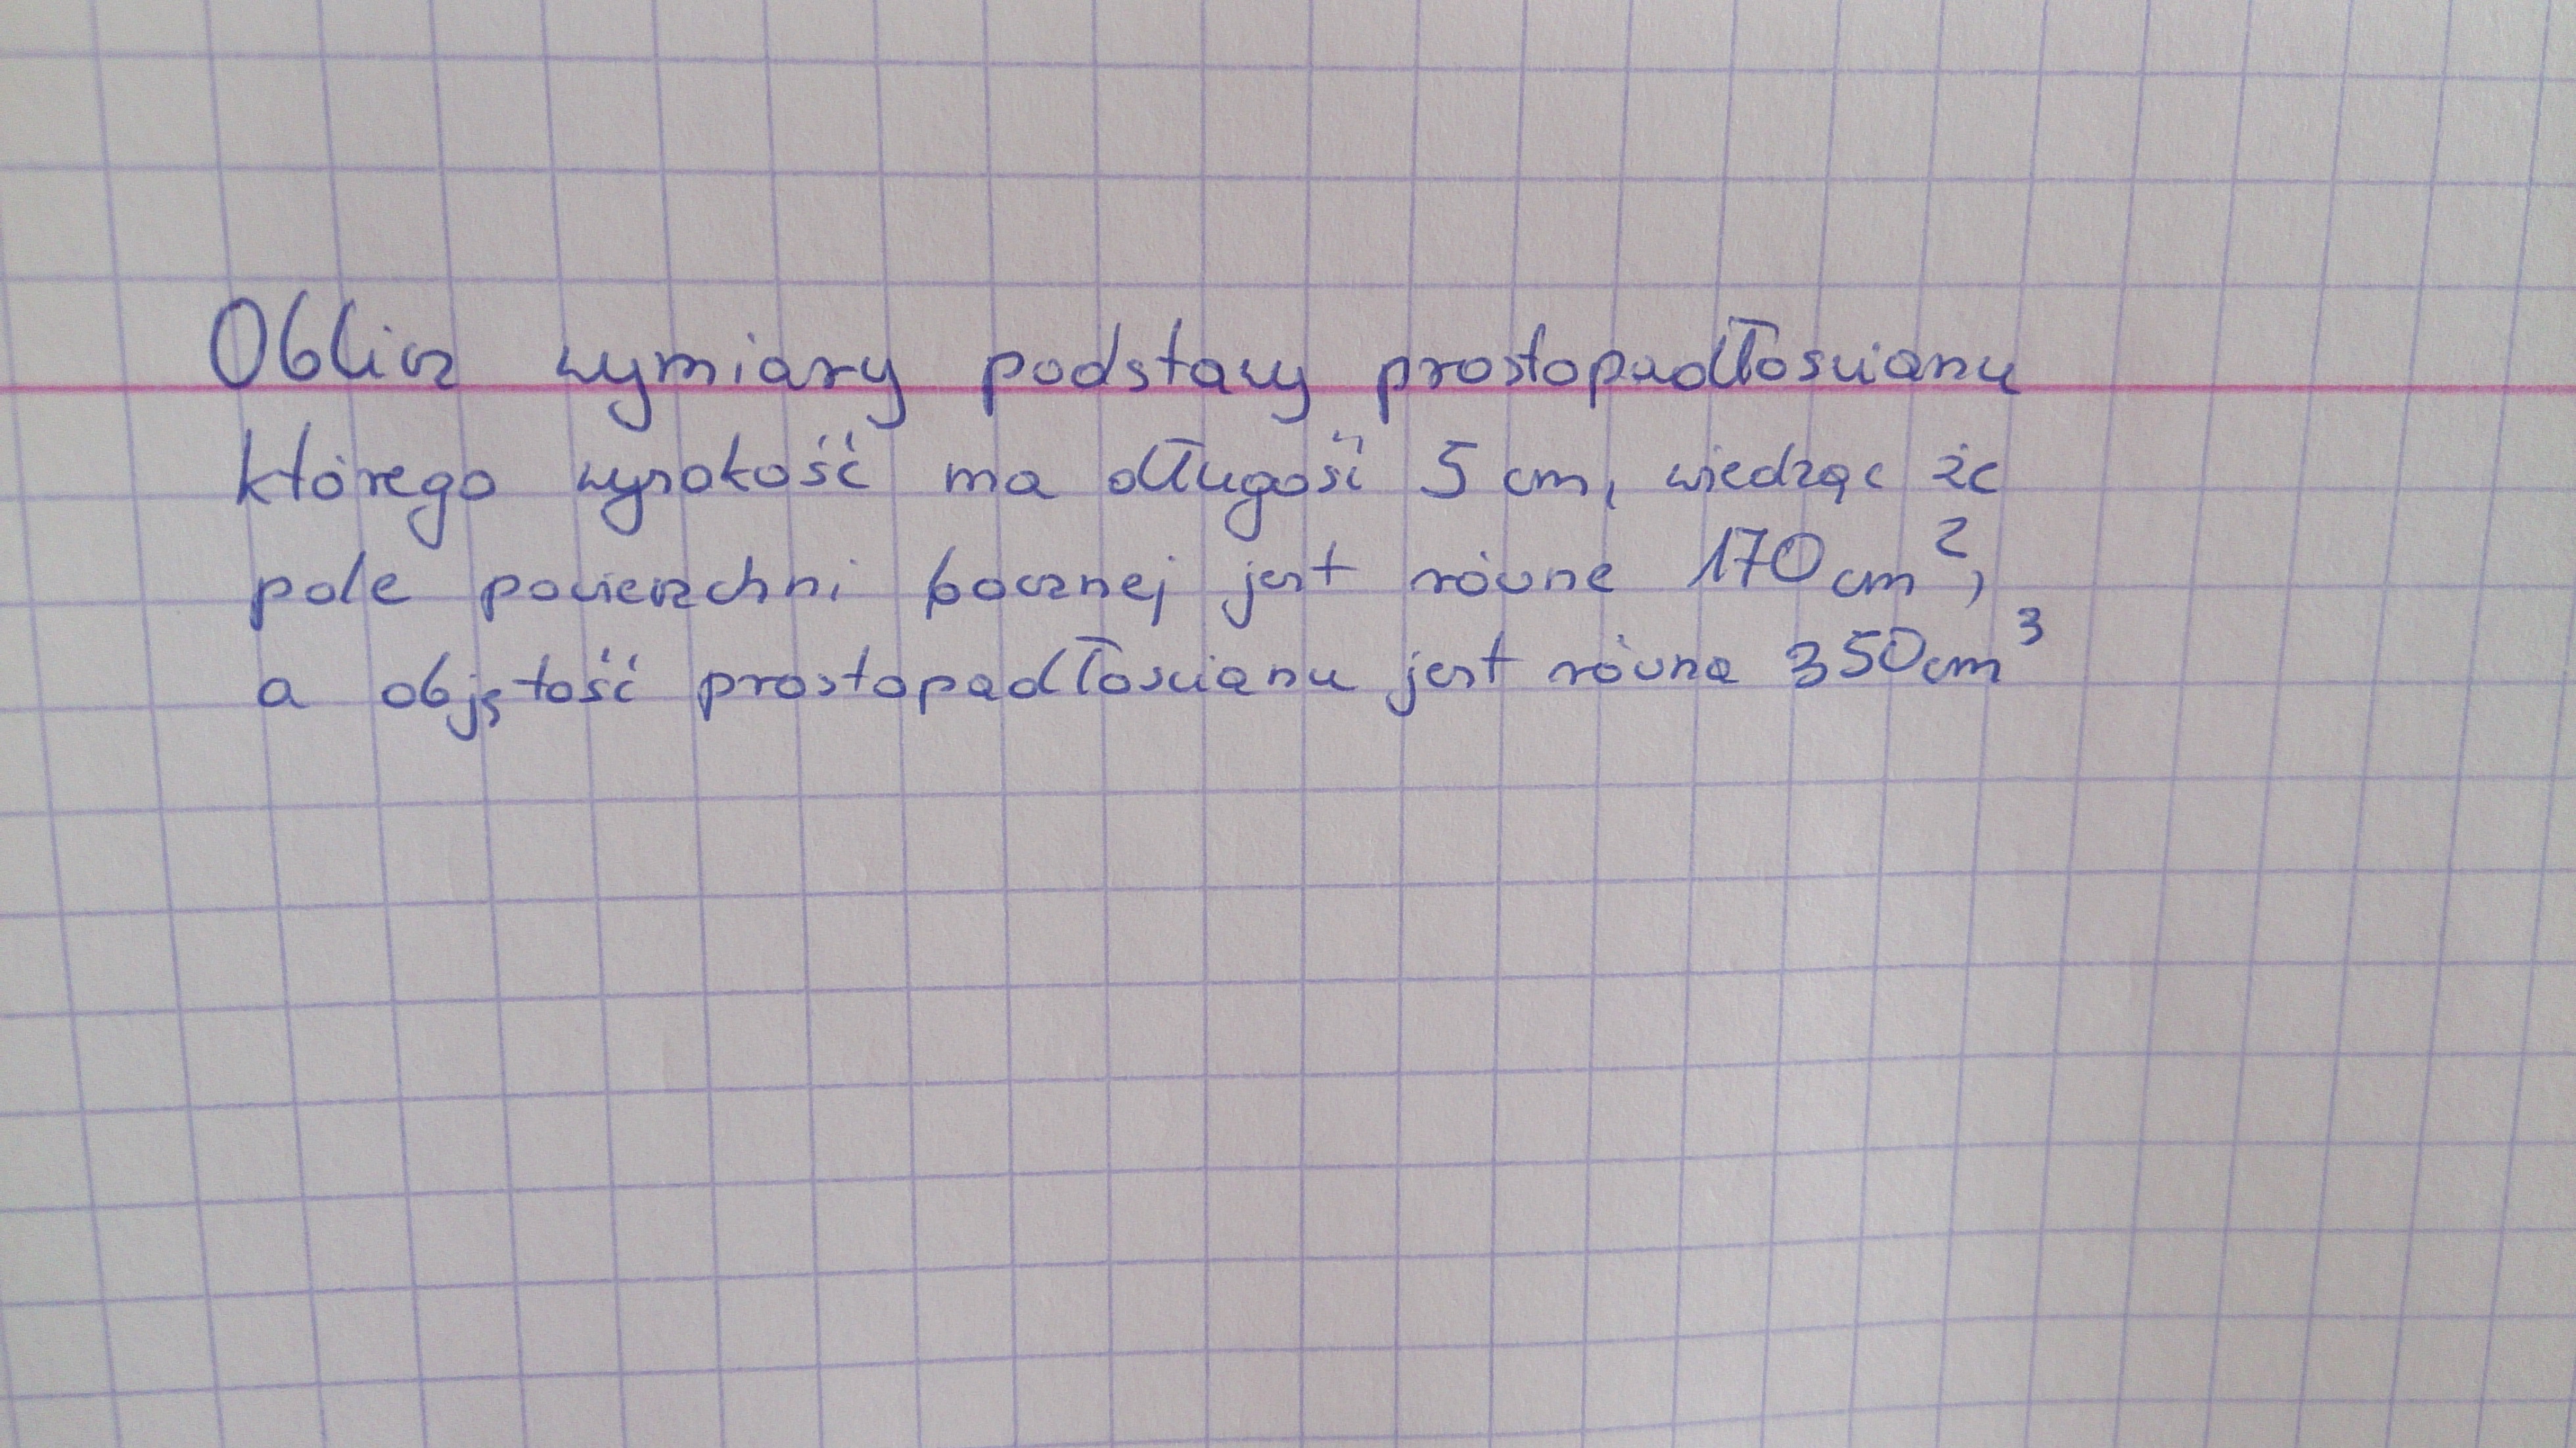 Oblicz wymiary podstawy prostopadłościanu
którego wysokość ma długość 5 cm, wiedząc że
pole powierzchni bocznej jest równe 170 cm²,
a objętość prostopadłościanu jest równa 350cm³